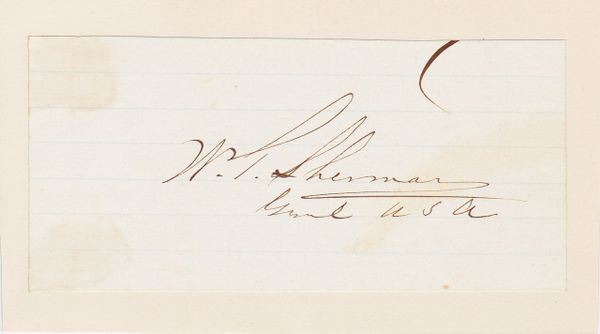 W. T. Sherman
Genl U S A